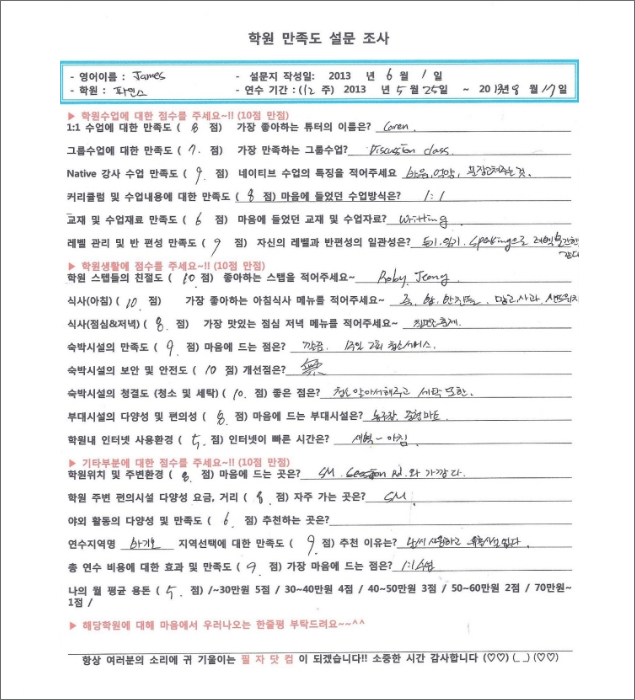 학원 만족도 설문 조사
- 영어이름 : James - 설문지 작성일: 2013 년 6 월 1 일
- 학원 : 파인스 - 연수 기간 :(12 주) 2013 년 5 월 25일 ~ 2013년 8 월 17일
▶ 학원수업에 대한 점수를 주세요~!! (10점 만점)
1:1 수업에 대한 만족도 ( 8 점) 가장 좋아하는 튜터의 이름은? Loren
그룹수업에 대한 만족도 ( 7. 점) 가장 만족하는 그룹수업? Discussion class.
Native 강사 수업 만족도 ( 9. 점) 네이티브 수업의 특징을 적어주세요 발음, 억양,
커리큘럼 및 수업내용에 대한 만족도 ( 8 점) 마음에 들었던 수업방식은? 1:1
교재 및 수업재료 만족도 ( 6 점) 마음에 들었던 교재 및 수업자료? writting
레벨 관리 및 반 편성 만족도 ( 9 점) 자신의 레벨과 반편성의 일관성은? 듣기, 읽기, speaking으로
▶ 학원생활에 점수를 주세요~!! (10점 만점)
학원 스텝들의 친절도 ( 10 점) 좋아하는 스텝을 적어주세요~ Roby, Jeong
식사(아침) ( 10. 점) 가장 좋아하는 아침식사 메뉴를 적어주세요~
식사(점심&저녁) ( 8. 점) 가장 맛있는 점심 저녁 메뉴를 적어주세요~
숙박시설의 만족도 ( 9. 점) 마음에 드는 점은? 깔끔. 1주일 2회 청소서비스.
숙박시설의 보안 및 안전도 ( 10 점) 개선점은? 無
숙박시설의 청결도 (청소 및 세탁) ( 10. 점) 좋은 점은? 청소 알아서해주고 세탁 또한.
부대시설의 다양성 및 편의성 ( 8. 점) 마음에 드는 부대시설은?
학원내 인터넷 사용환경 ( 5. 점) 인터넷이 빠른 시간은? 새벽 ~ 아침
▶ 기타부분에 대한 점수를 주세요~!! (10점 만점)
학원위치 및 주변환경 ( 8. 점) 마음에 드는 곳은? SM. Session Rd. 와 가깝다.
학원 주변 편의시설 다양성 요금, 거리 ( 8. 점) 자주 가는 곳은? SM
야외 활동의 다양성 및 만족도 ( 6. 점) 추천하는 곳은?
연수지역명 바기오 지역선택에 대한 만족도 ( 9 점) 추천 이유는? 날씨 시원하고 유흥시설 없다.
총 연수 비용에 대한 효과 및 만족도 ( 9. 점) 가장 마음에 드는 점은? 1:1수업
나의 월 평균 용돈 ( 5. 점) /~30만원 5점 / 30~40만원 4점 / 40~50만원 3점 / 50~60만원 2점 / 70만원~
1점 /
▶ 해당학원에 대해 마음에서 우러나오는 한줄평 부탁드려요~~^^
항상 여러분의 소리에 귀 기울이는 필 자 닷 컴 이 되겠습니다!! 소중한 시간 감사합니다 (♡♡) (_ _) (♡♡)